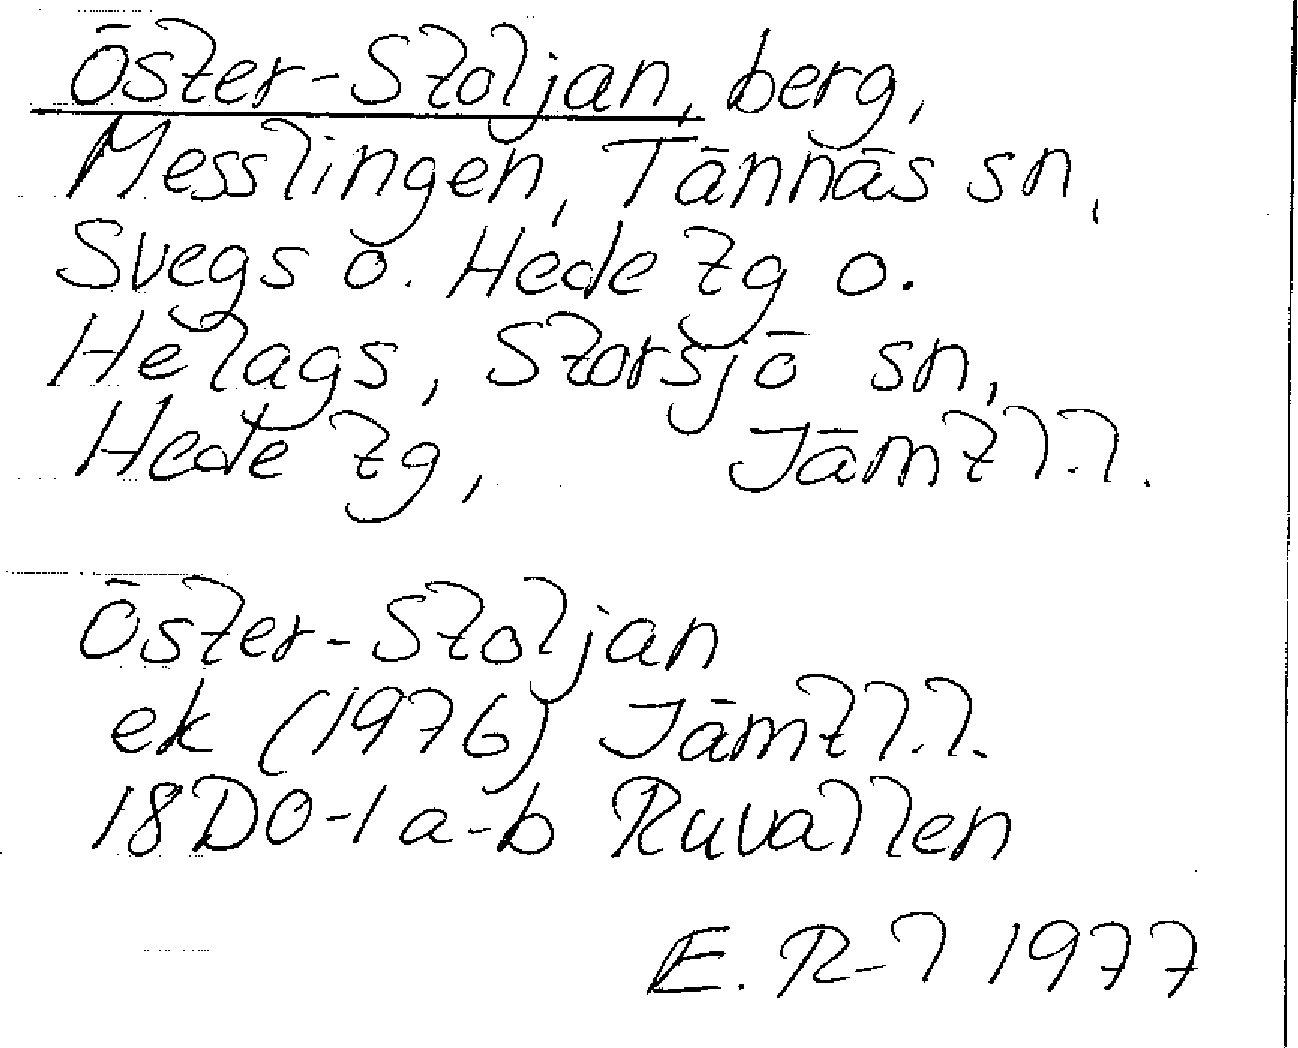 Öster-Stoljan, berg,
Messlingen, Tännäs sn,
Svegs o. Hede tg o.
Helags, Storsjö sn,
Hede tg, Jämtl.l.
Öster-Stoljan
ek (1976) Jämtl.l.
18D0-1a-b Ruvallen
E. R-l 1977